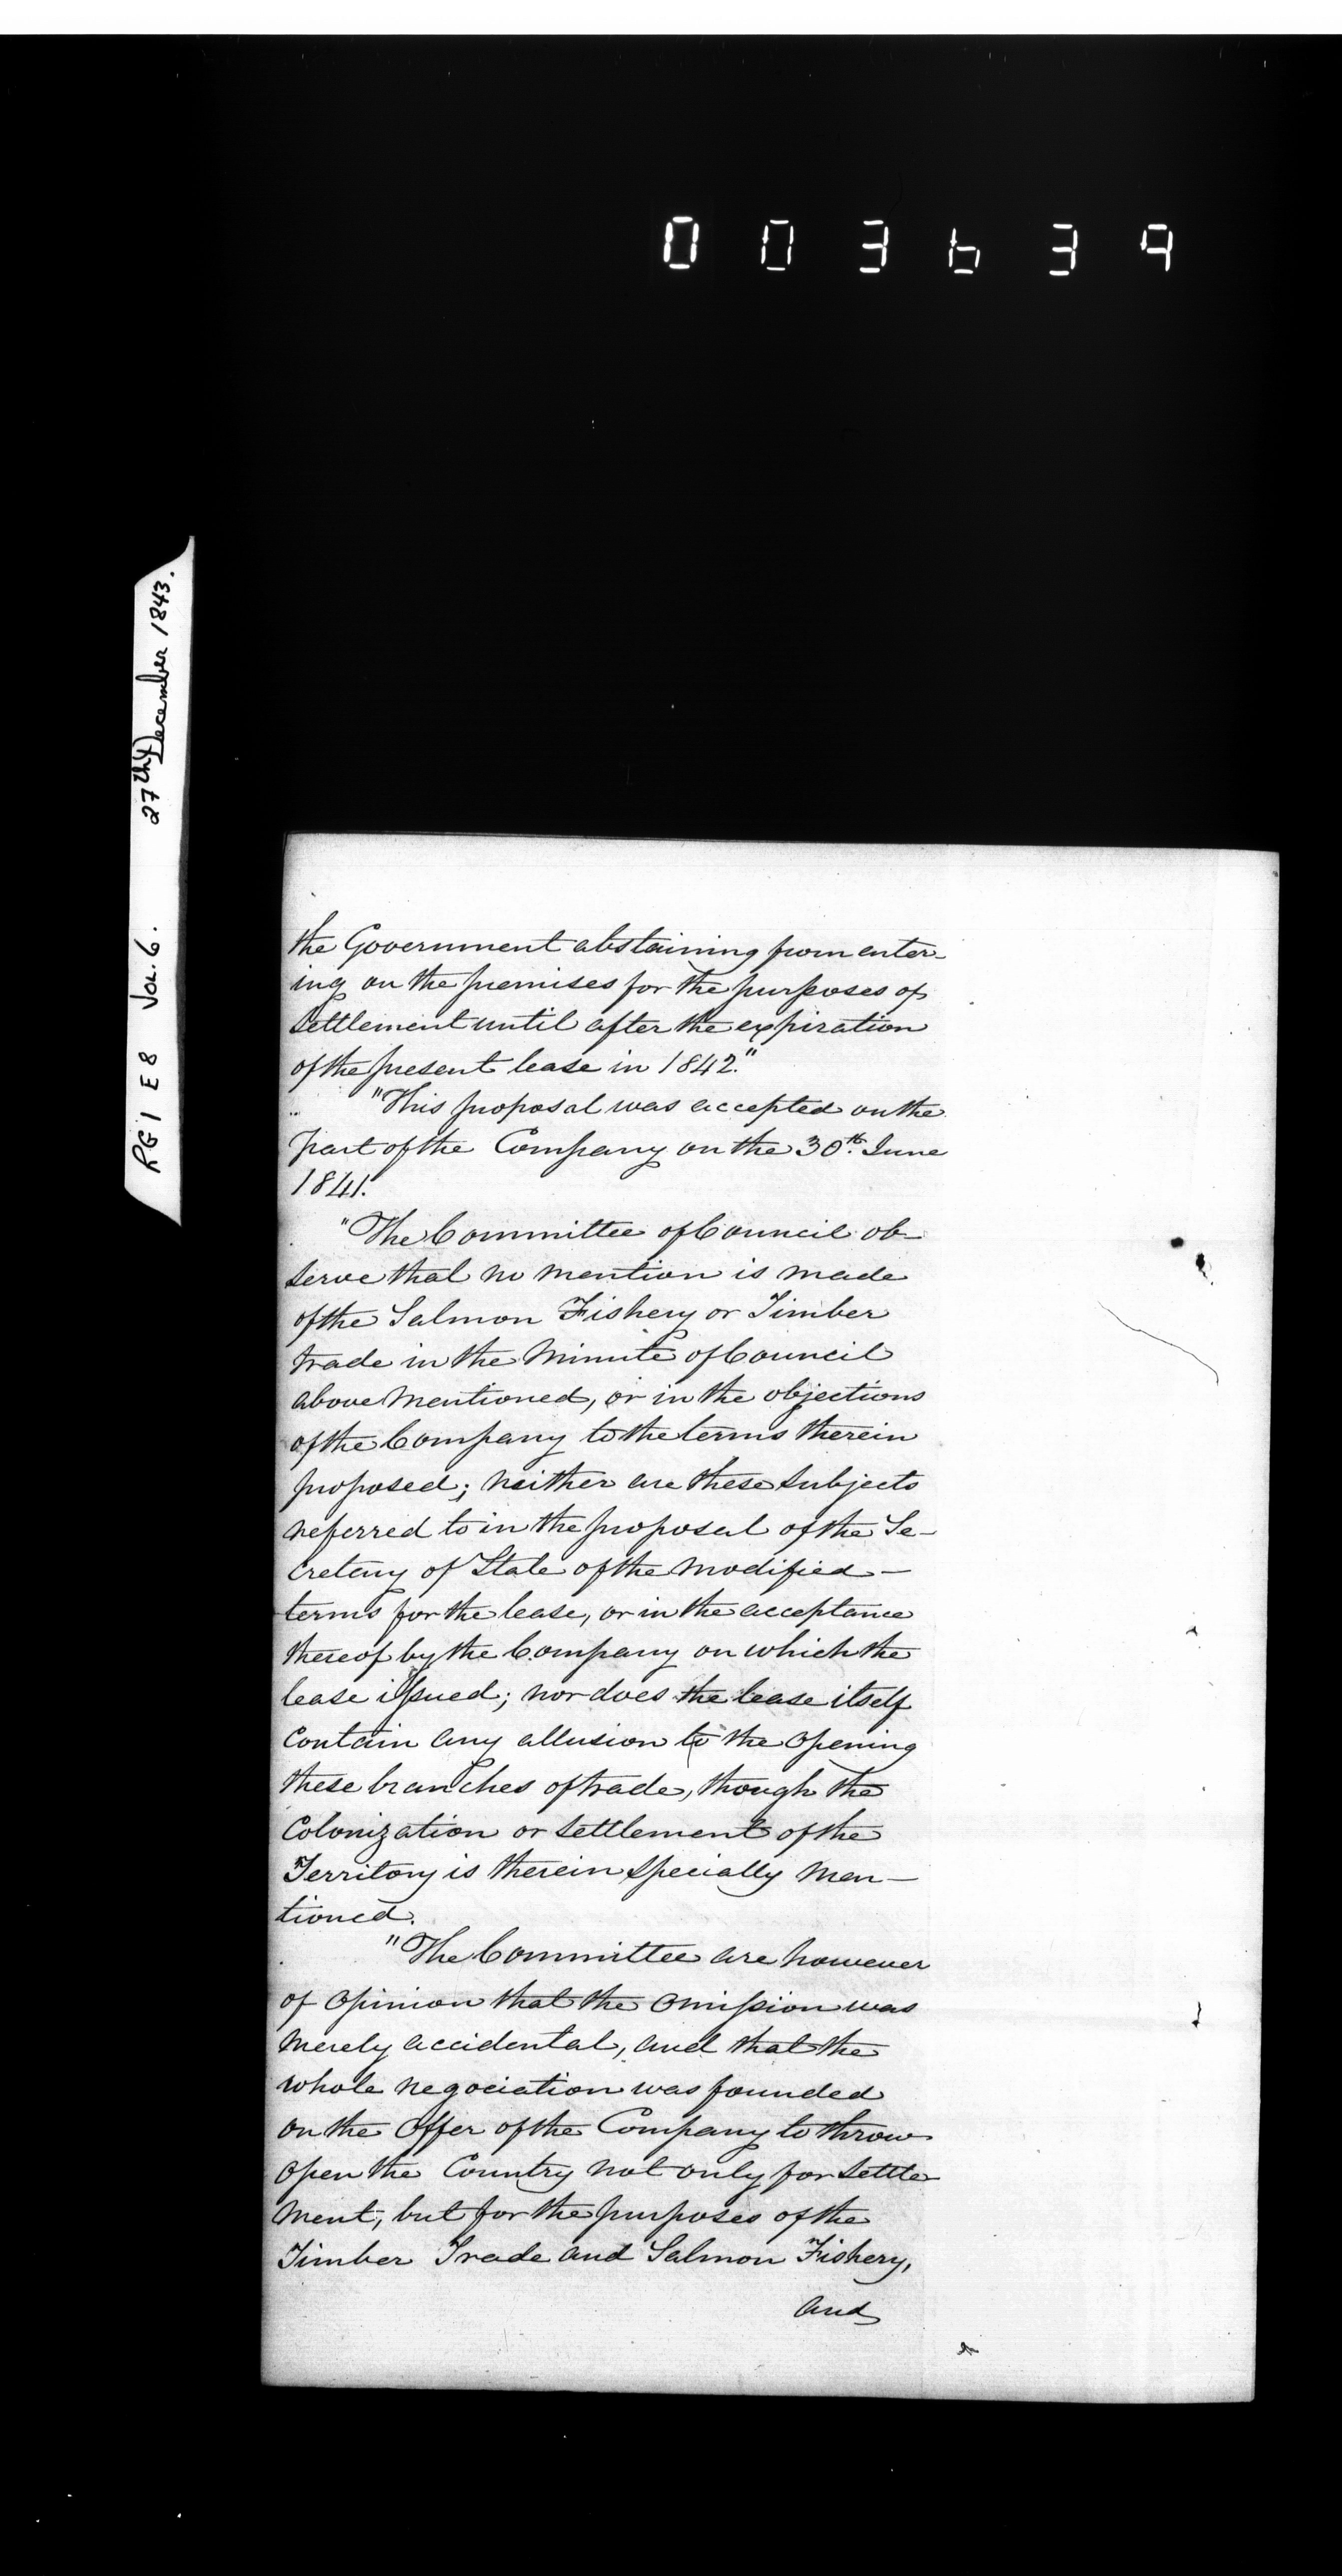 003639
RG1 E8 Vol. 6. 27th December 1843.
the Government abstaining from enter-
ing on the premises for the purposes of
settlement until after the expiration
of the present lease in 1842."
"This proposal was accepted on the
part of the Company on the 30th. June
1841.
"The Committee of Council ob-
serve that no mention is made
of the Salmon Fishery or Timber
trade in the Minute of Council
above mentioned, or in the objections
of the Company to the terms therein
proposed; neither are these subjects
referred to in the proposal of the Se-
cretary of State of the modified -
terms for the lease, or in the acceptance
thereof by the Company on which the
lease issued; nor does the lease itself
contain any allusion to the opening
these branches of trade, though the
Colonization or settlement of the
Territory is therein specially men-
tioned.
"The Committee are however
of opinion that the omission was
merely accidental, and that the
whole negociation was founded
on the offer of the Company to throw
open the Country not only for settle-
ment, but for the purposes of the
Timber Trade and Salmon Fishery,
and